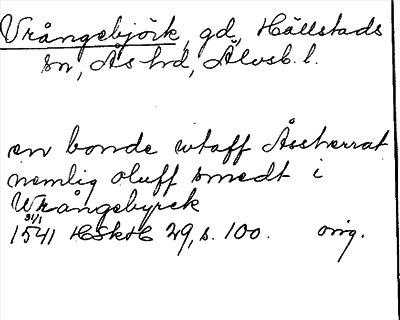 Vrångebjörk, gd, Hällstads
sn, Ås hd, Älvsb. l.
en bonde utaff Åssherrat
nemlig oluff smedt i
Wrångebyrck
31/1
1541 HSkH 29, s. 100. orig.